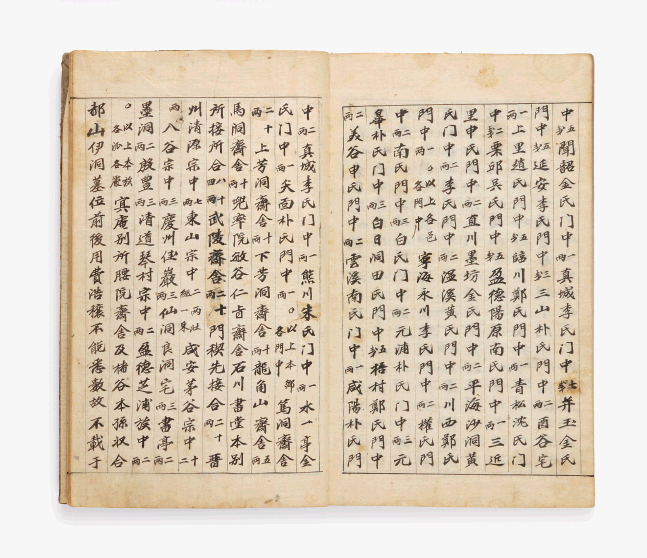 中五兩聞韶金氏門中一兩真城李氏門中七兩并玉金氏
門中五兩延安李氏門中三兩三山朴氏門中二兩酉谷宅
一兩上里趙氏門中五兩臨川鄭氏門中一兩青松沈氏門
中二兩栗邱吳氏門中五兩盈德陽原南氏門中一兩三近
里申氏門中二兩直川墨坊金氏門中二兩平海沙洞黃
氏門中二兩李氏門中二兩溫溪黃氏門中二兩川西鄭氏
門中一兩○以上各邑各門中寧海永川李氏門中二兩權氏門
中二兩南氏門中三兩白氏門中二兩元浦朴氏門中三兩元
皐朴氏門中三兩白日洞田氏門中五兩梧村鄭氏門中
二兩美谷申氏門中二兩雲溪南氏門中一兩咸陽朴氏門
中二兩真城李氏門中一兩熊川朱氏門中一兩水一亭金
氏門中一兩矢面朴氏門中一兩○以上本鄉各門中篤洞齋舍
二十兩上芳洞齋舍十兩下芳洞齋舍十兩龍角山齋舍五兩
馬洞齋舍十兩兜率院畝谷仁首齋舍石川書堂本別
所搭所合八十四兩武陵齋舍二十兩門稧先接合二十兩晋
州清源宗中七兩東山宗中二兩一束咸安茅谷宗中十二
兩八谷宗中三兩慶州佳巖三兩仙洞良洞宅三兩書亭二兩
墨洞二兩殷豊三兩清道琴村宗中二兩盈德芝浦族中二兩
○以上本族各派各處寘庵別所腰院齋舍及楮谷本孫収合
郝山伊洞墓位前後用費浩穰不能悉數故不載于